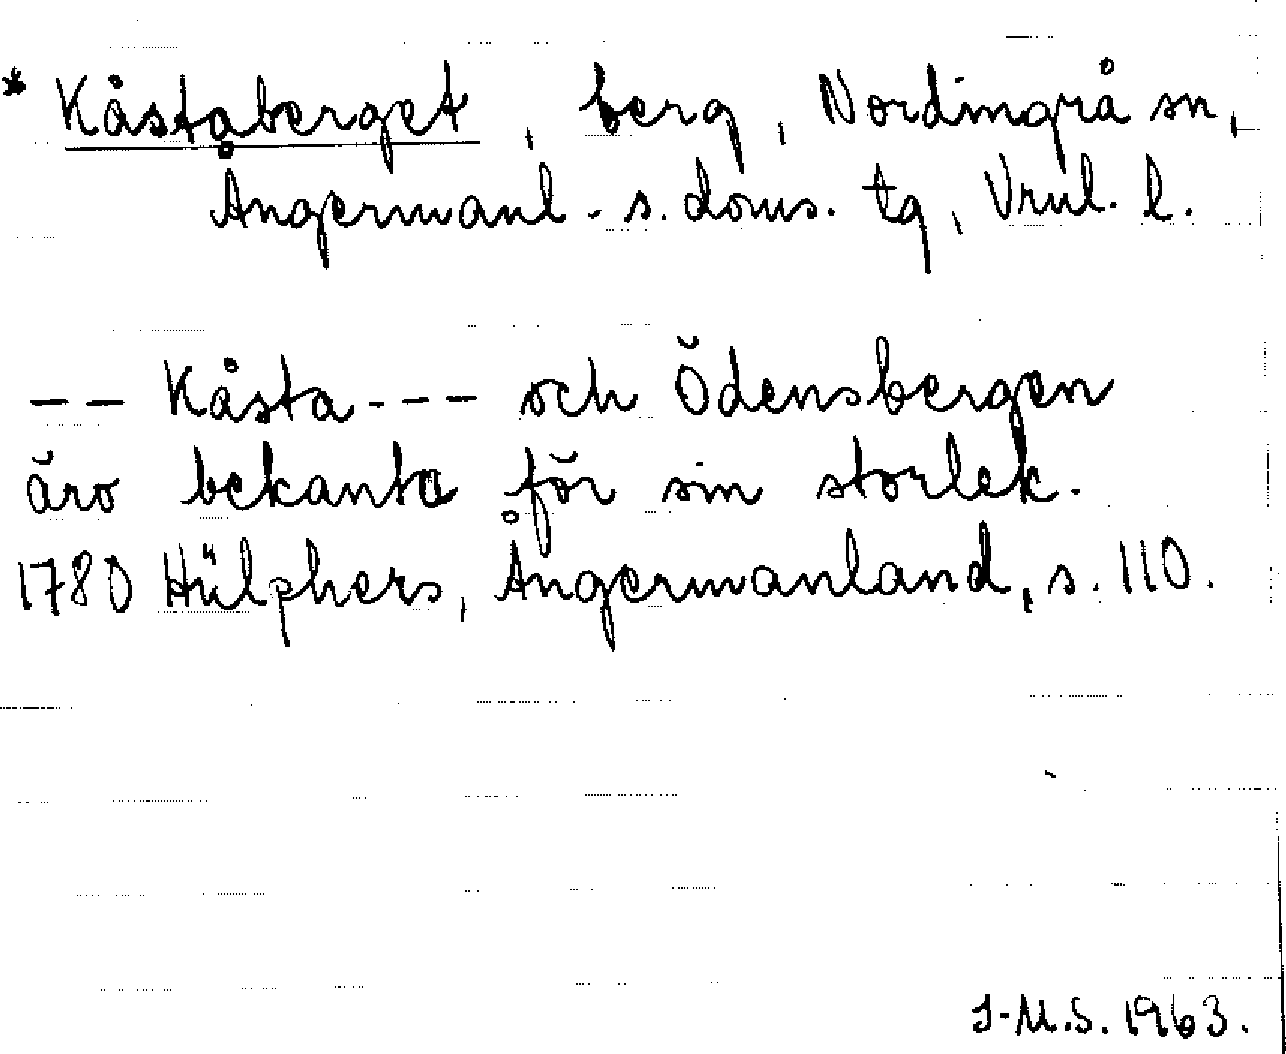 * Kåstaberget, berg, Nordingrå sn,
Ångermanl. s. doms. tg, Vrnl. l.
-- Kåsta --- och Ödensbergen
äro bekanta för sin storlek.
1780 Hülphers, Ångermanland, s. 110.
I-M.S. 1963.